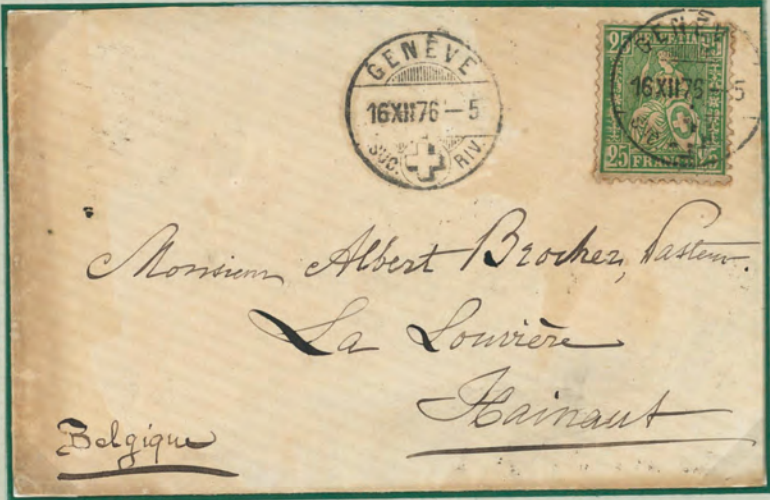 GENÈVE
16 XII 76 – 5
SUC. RIV.
25 HELVETIA 25
GENÈV
16 XII 76 – 5
SUC.
25 FRANCO 25
Monsieur Albert Brocher, Pasteur.
La Louvière
Hainaut
Belgique